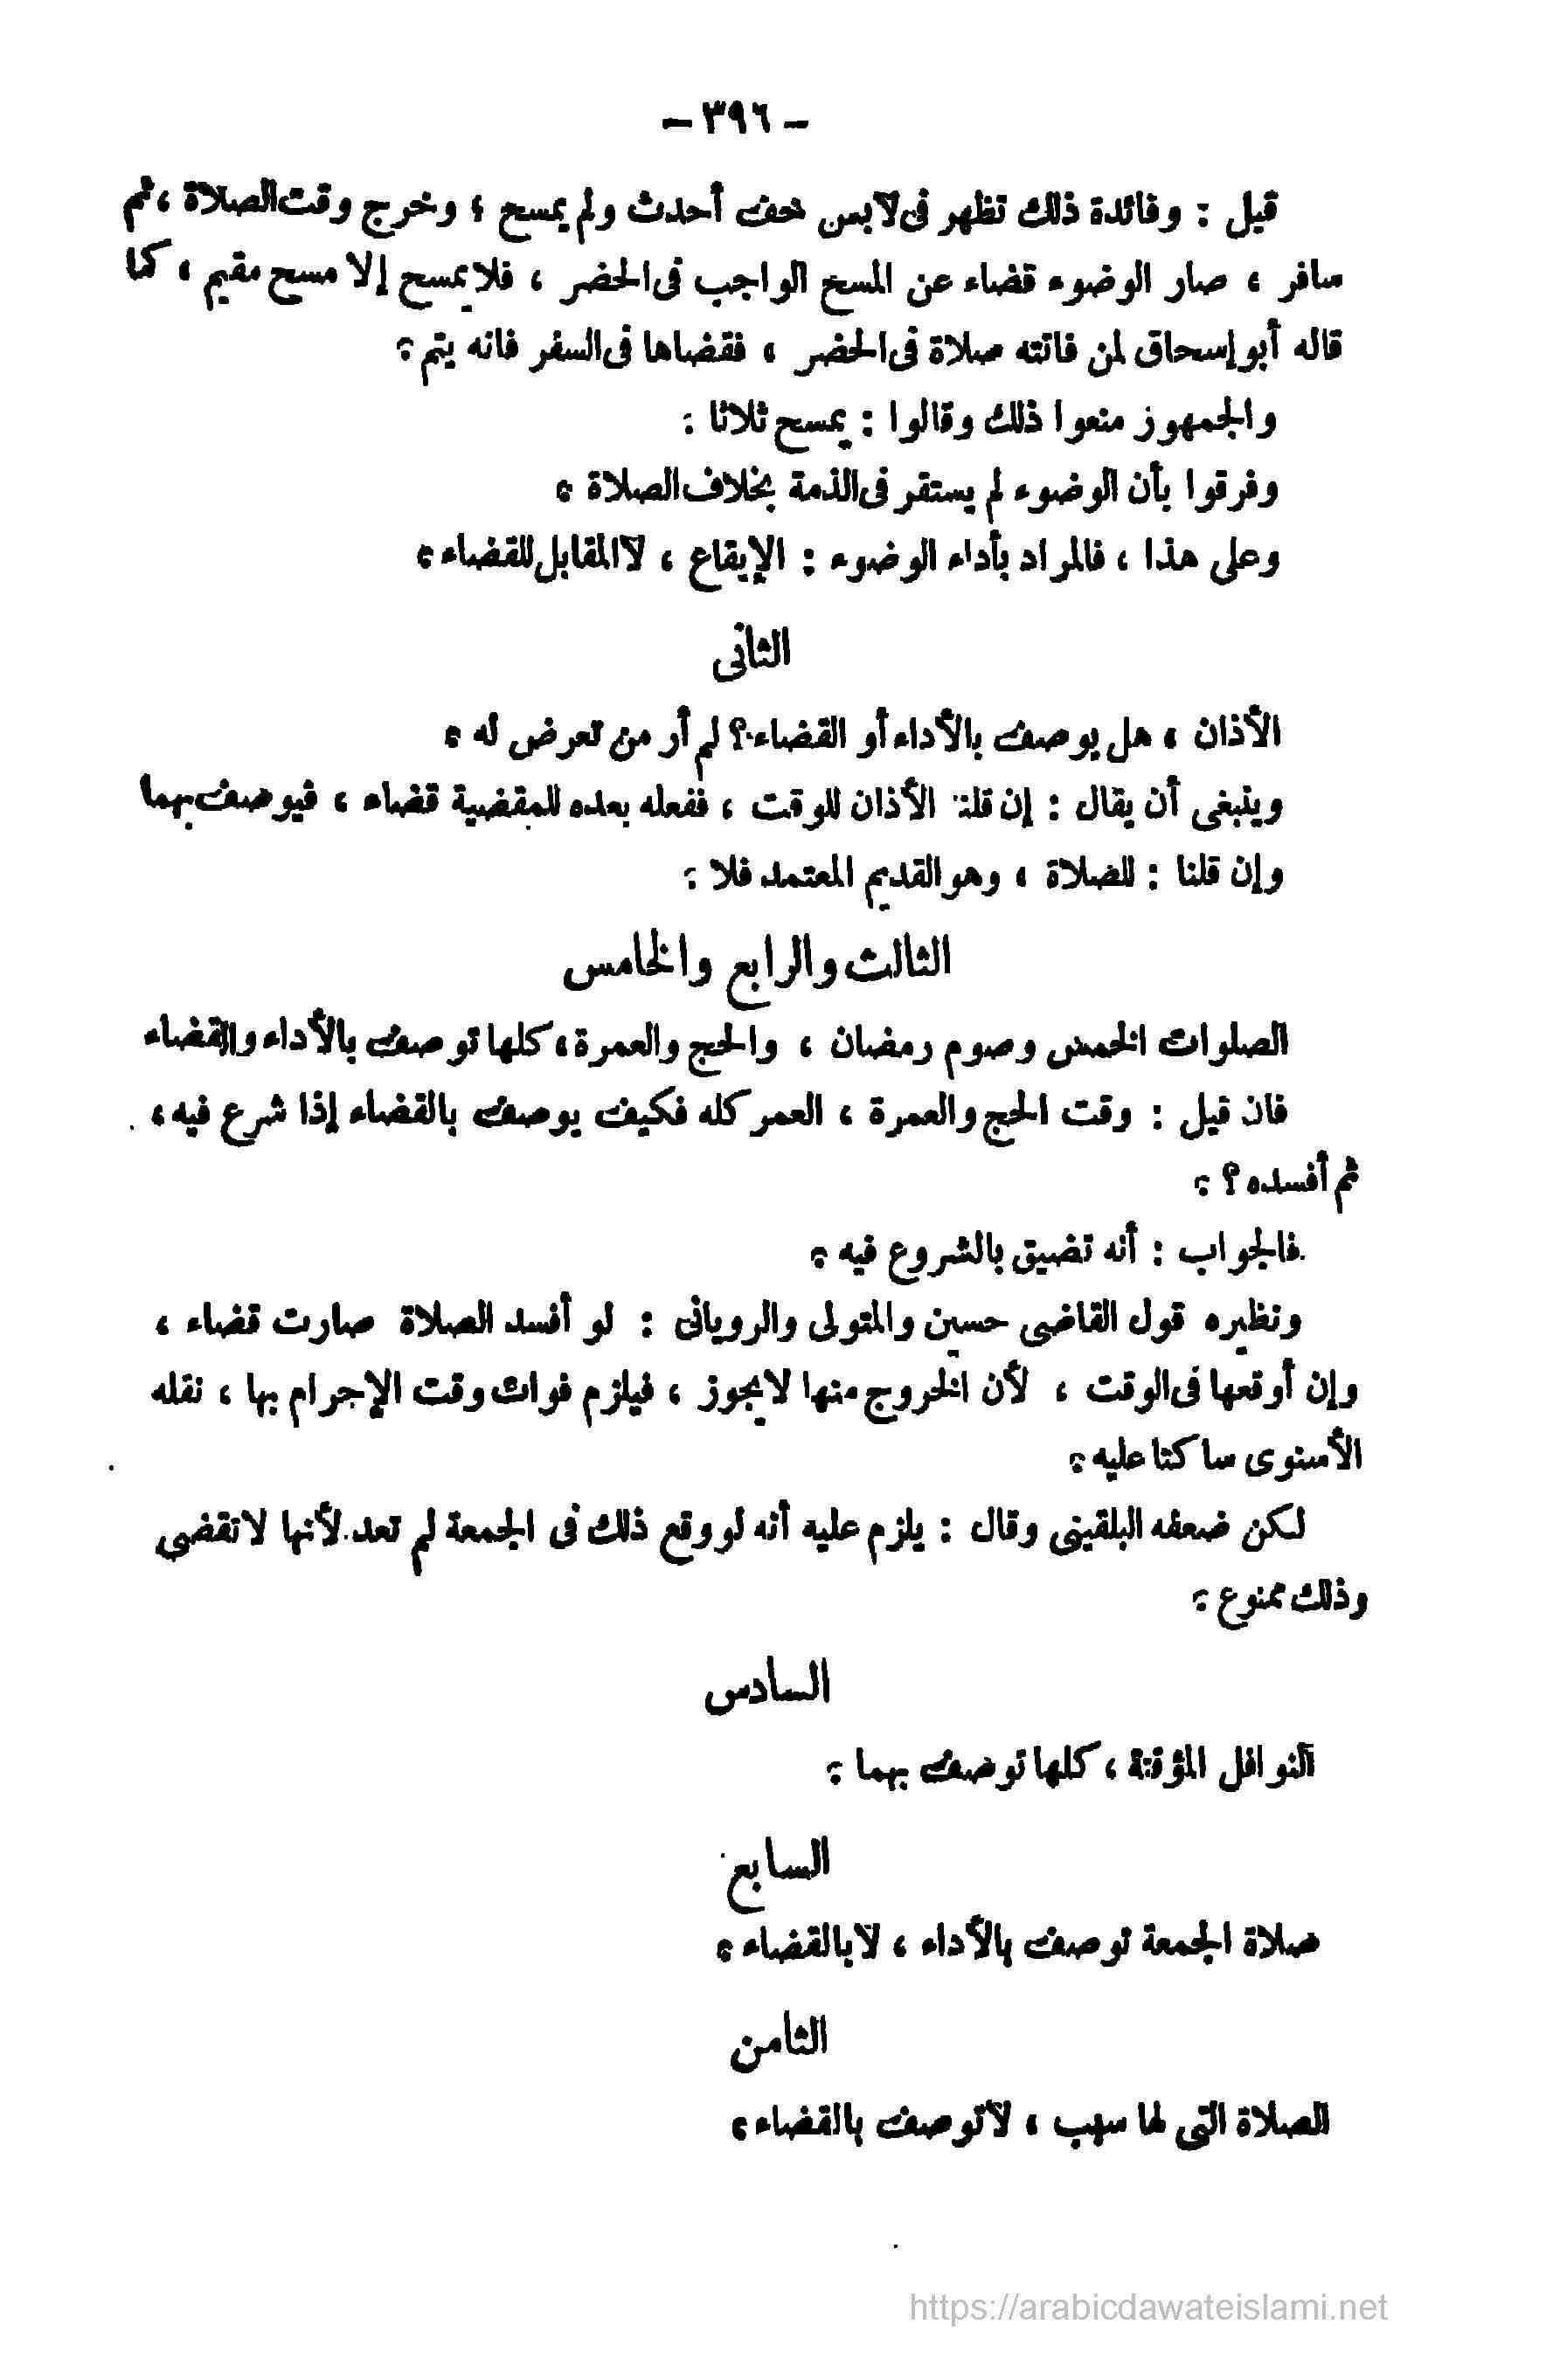 - ٣٩٦ -
قيل : وفائدة ذلك تظهر فى لابس خف أحدث ولم يمسح ؛ وخرج وقت الصلاة ، ثم
سافر ، صار الوضوء قضاء عن المسح الواجب فى الحضر ، فلا يمسح إلا مسح مقيم ، كما
قاله أبو إسحاق لمن فاتته صلاة فى الحضر ، فقضاها فى السفر فانه يتم ؛
والجمهور منعوا ذلك وقالوا : يمسح ثلاثا :
وفرقوا بأن الوضوء لم يستقر فى الذمة بخلاف الصلاة ؛
وعلى هذا ، فالمراد بأداء الوضوء : الإيقاع ، لا المقابل للقضاء ؛
الثانى
الأذان ، هل يوصف بالأداء أو القضاء ؟ لم أر من تعرض له ؛
وينبغى أن يقال : إن قلنا الأذان للوقت ، ففعله بعده للمقضية قضاء ، فيوصف بهما
وإن قلنا : للصلاة ، وهو القديم المعتمد فلا :
الثالث والرابع والخامس
الصلوات الخمس وصوم رمضان ، والحج والعمرة ، كلها توصف بالأداء والقضاء
فان قيل : وقت الحج والعمرة ، العمر كله فكيف يوصف بالقضاء إذا شرع فيه ،
ثم أفسده ؟ :
فالجواب : أنه تضيق بالشروع فيه ؛
ونظيره قول القاضى حسين والمتولى والرويانى : لو أفسد الصلاة صارت قضاء ،
وإن أوقعها فى الوقت ، لأن الخروج منها لا يجوز ، فيلزم فوات وقت الإحرام بها ، نقله
الأسنوى ساكتا عليه ؛
لكن ضعفه البلقينى وقال : يلزم عليه أنه لو وقع ذلك فى الجمعة لم تعد لأنها لا تقضى
وذلك ممنوع :
السادس
النوافل المؤقتة ، كلها توصف بهما :
السابع
صلاة الجمعة توصف بالأداء ، لا بالقضاء ؛
الثامن
الصلاة التى لها سبب ، لا توصف بالقضاء ؛
https://arabicdawateislami.net